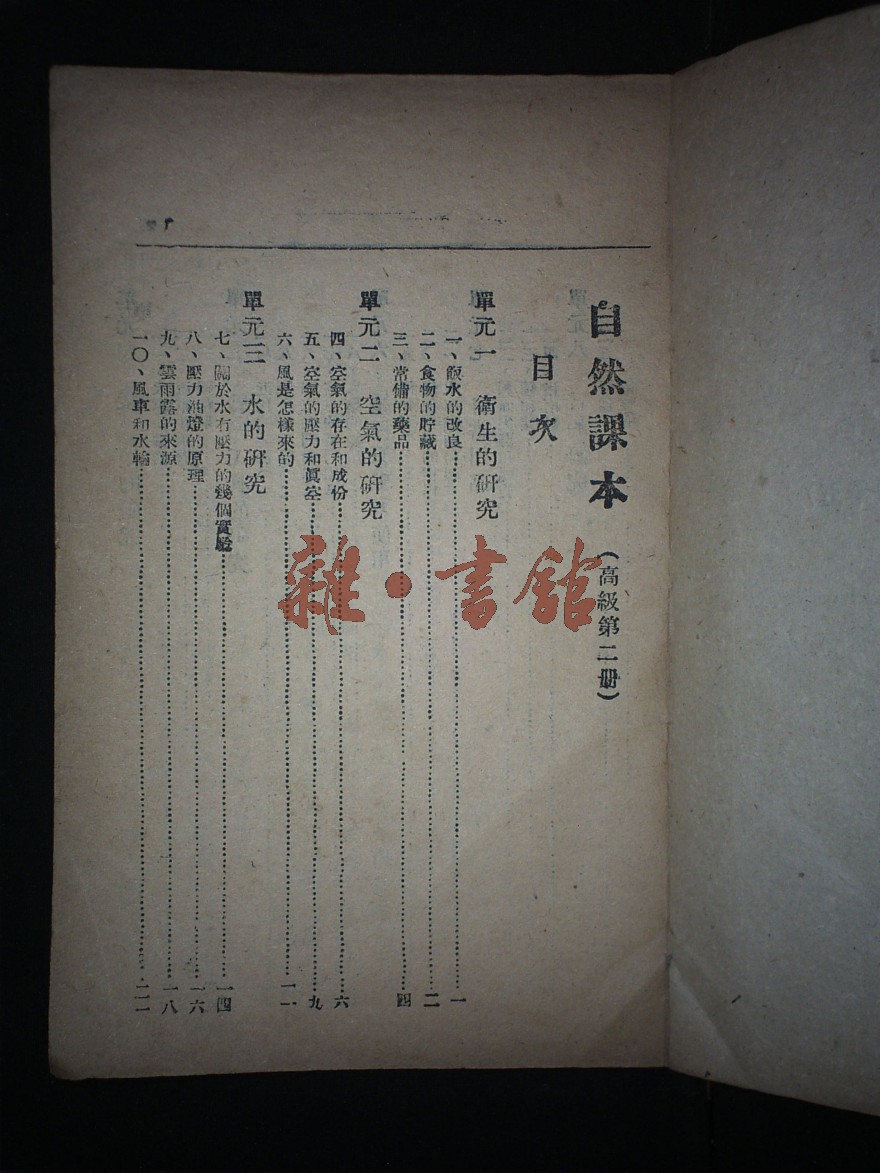 自然課本(高級第二册)
目次
單元一 衛生的研究
一、飲水的改良 一
二、食物的貯藏 二
三、常備的藥品 四
單元二 空氣的研究
四、空氣的存在和成份 六
五、空氣的壓力和眞空 九
六、風是怎樣來的 一一
單元三 水的研究
七、關於水有壓力的幾個實驗 一四
八、壓力油燈的原理 一六
九、雲雨露的來源 一八
一〇、風車和水輪
雜·書館